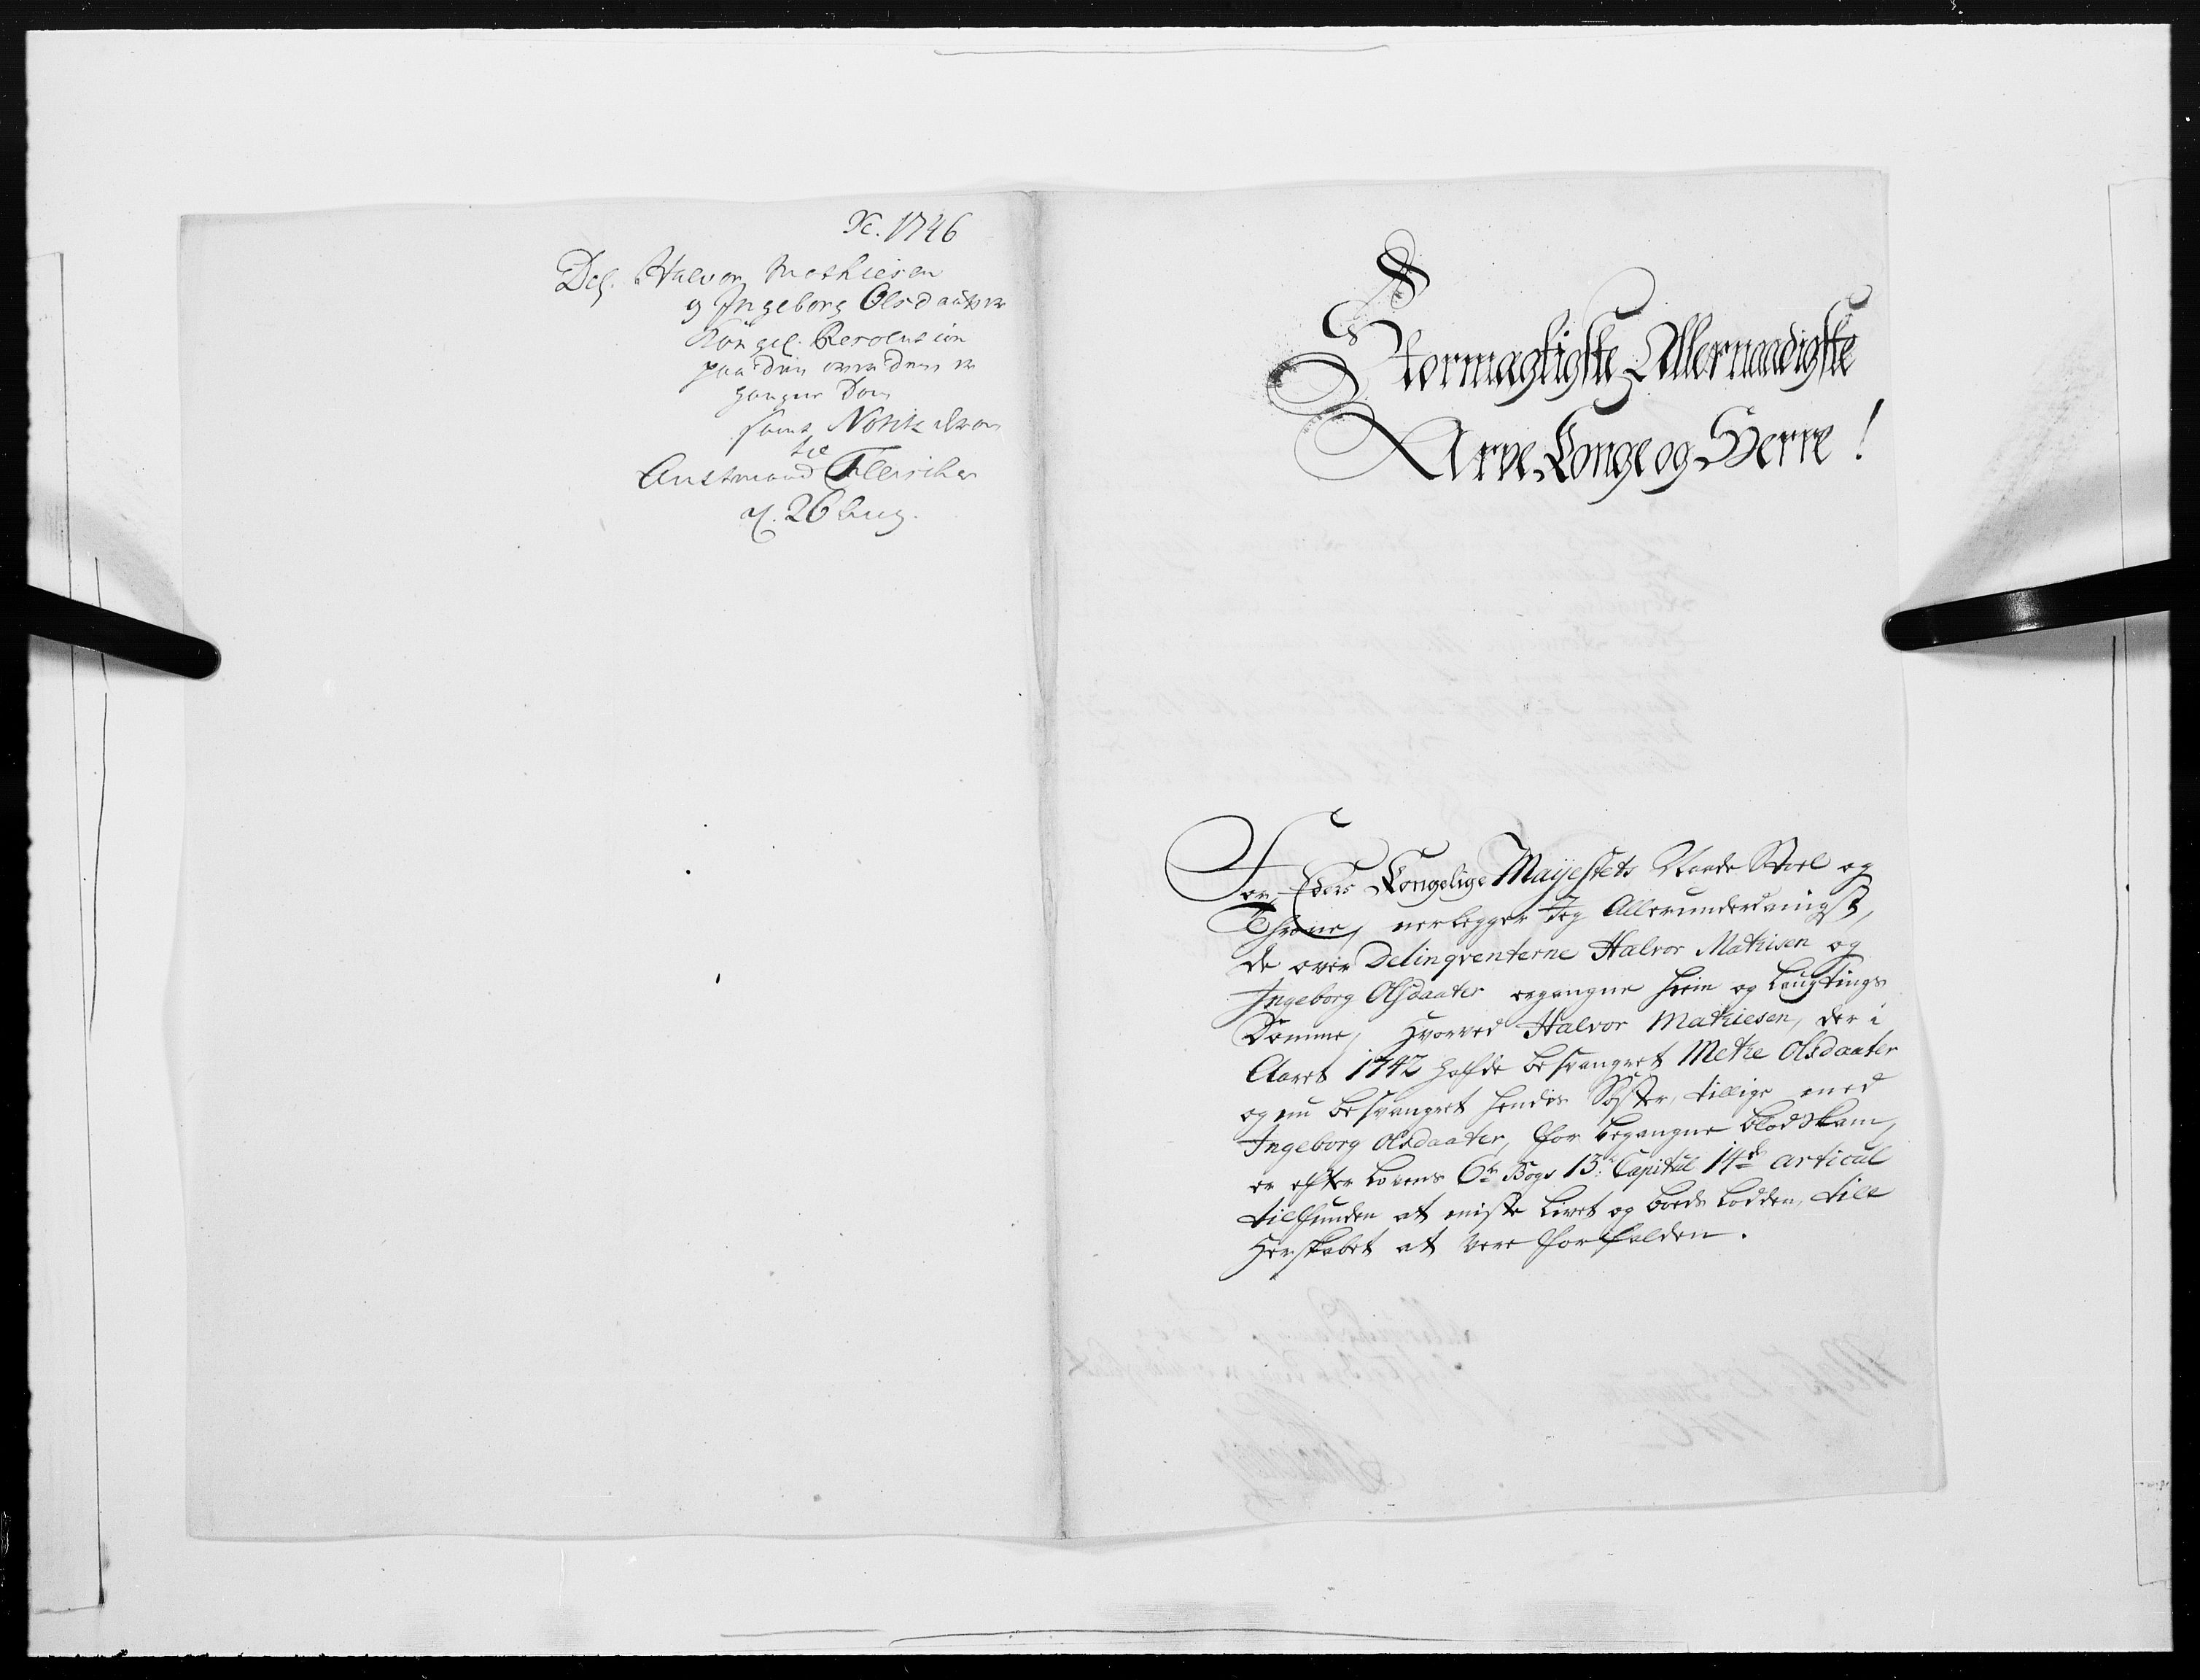 N. 1746
Del. Halvor Mathiesen
og Ingeborg Olsdaatter
Kongel. Resolution
paa den over dem er
gangne Dom
samt Notitz derom
til
Amtmand Fleischer
d. 26 Aug.
Stormægtigste Allernaadigste
Arve Konge og Herre!
For Eders Kongelige Mayestets Naade Stoel og
Throne, nerlegger Jeg Allerunderdanigst,
de over Delinqventerne Halvor Mathisen og
Ingeborg Olsdaater ergangne Hiem og Laugtings
Domme, Hvorved Halvor Mathiesen, der i
Aaret 1742 hafde besvangret Methe Olsdaater
og nu besvangret hendes Søster, tillige med
Ingeborg Olsdaater, for begangne blodskam,
er efter Lovens 6te Bogs 13de Capitul 14de articul
tilfunden at miste Livet og boeds Lodden, till
Herskabet at vere forfalden.